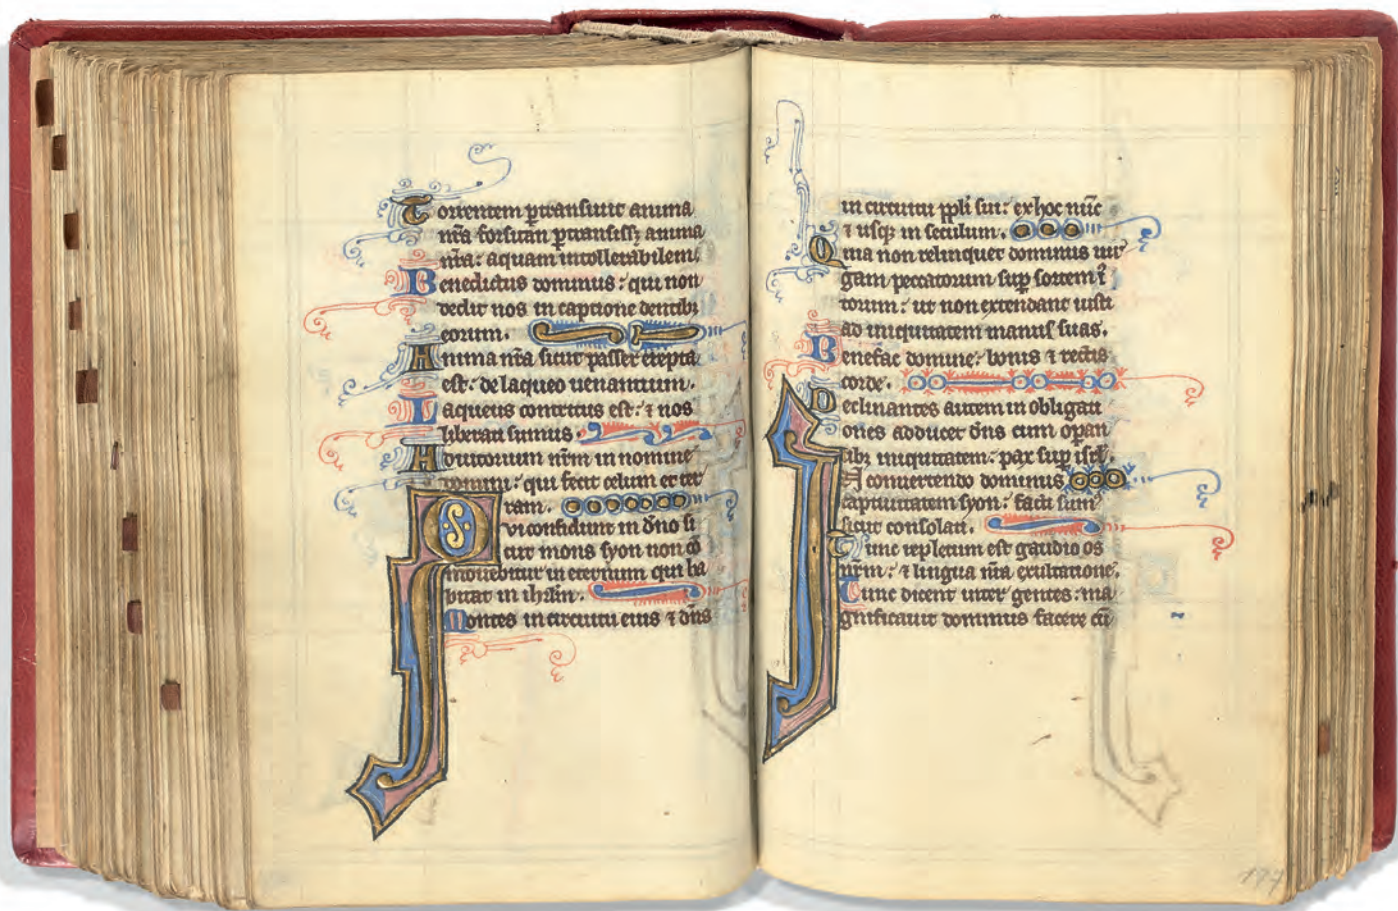 Torrentem ptransiuit anima
nr̃a forsitan ptransiss; anima
nr̃a: aquam intollerabilem.
Benedictus dominus: qui non
dedit nos in captione dentibꝫ
eorum.
Anima nr̃a sicut passer erepta
est: de laqueo uenantium.
Laqueus contritus est: ⁊ nos
liberati sumus.
Adiutorium nr̃m in nomine
domini: qui fecit celum et ter
ram.
Qui confidunt in dño si
cut mons syon non cõ
mouebitur in eternum qui ha
bitat in ihrl̃m.
Montes in circuitu eius ⁊ dñs
in circuitu ppl̃i sui: ex hoc nũc
⁊ usqꝫ in seculum.
Quia non relinquet dominus uir
gam peccatorum sup sortem i
torum: ut non extendant iusti
ad iniquitatem manus suas.
Benefac domine: bonis ⁊ rectis
corde.
Declinantes autem in obligati
ones adducet dñs cum opan
tibꝫ iniquitatem: pax sup isrl̃.
In conuertendo dominus
captiuitatem syon: facti sum
sicut consolati.
Tunc repletum est gaudio os
nr̃m: ⁊ lingua nr̃a exultatione.
Tunc dicent inter gentes: ma
gnificauit dominus facere cũ
177